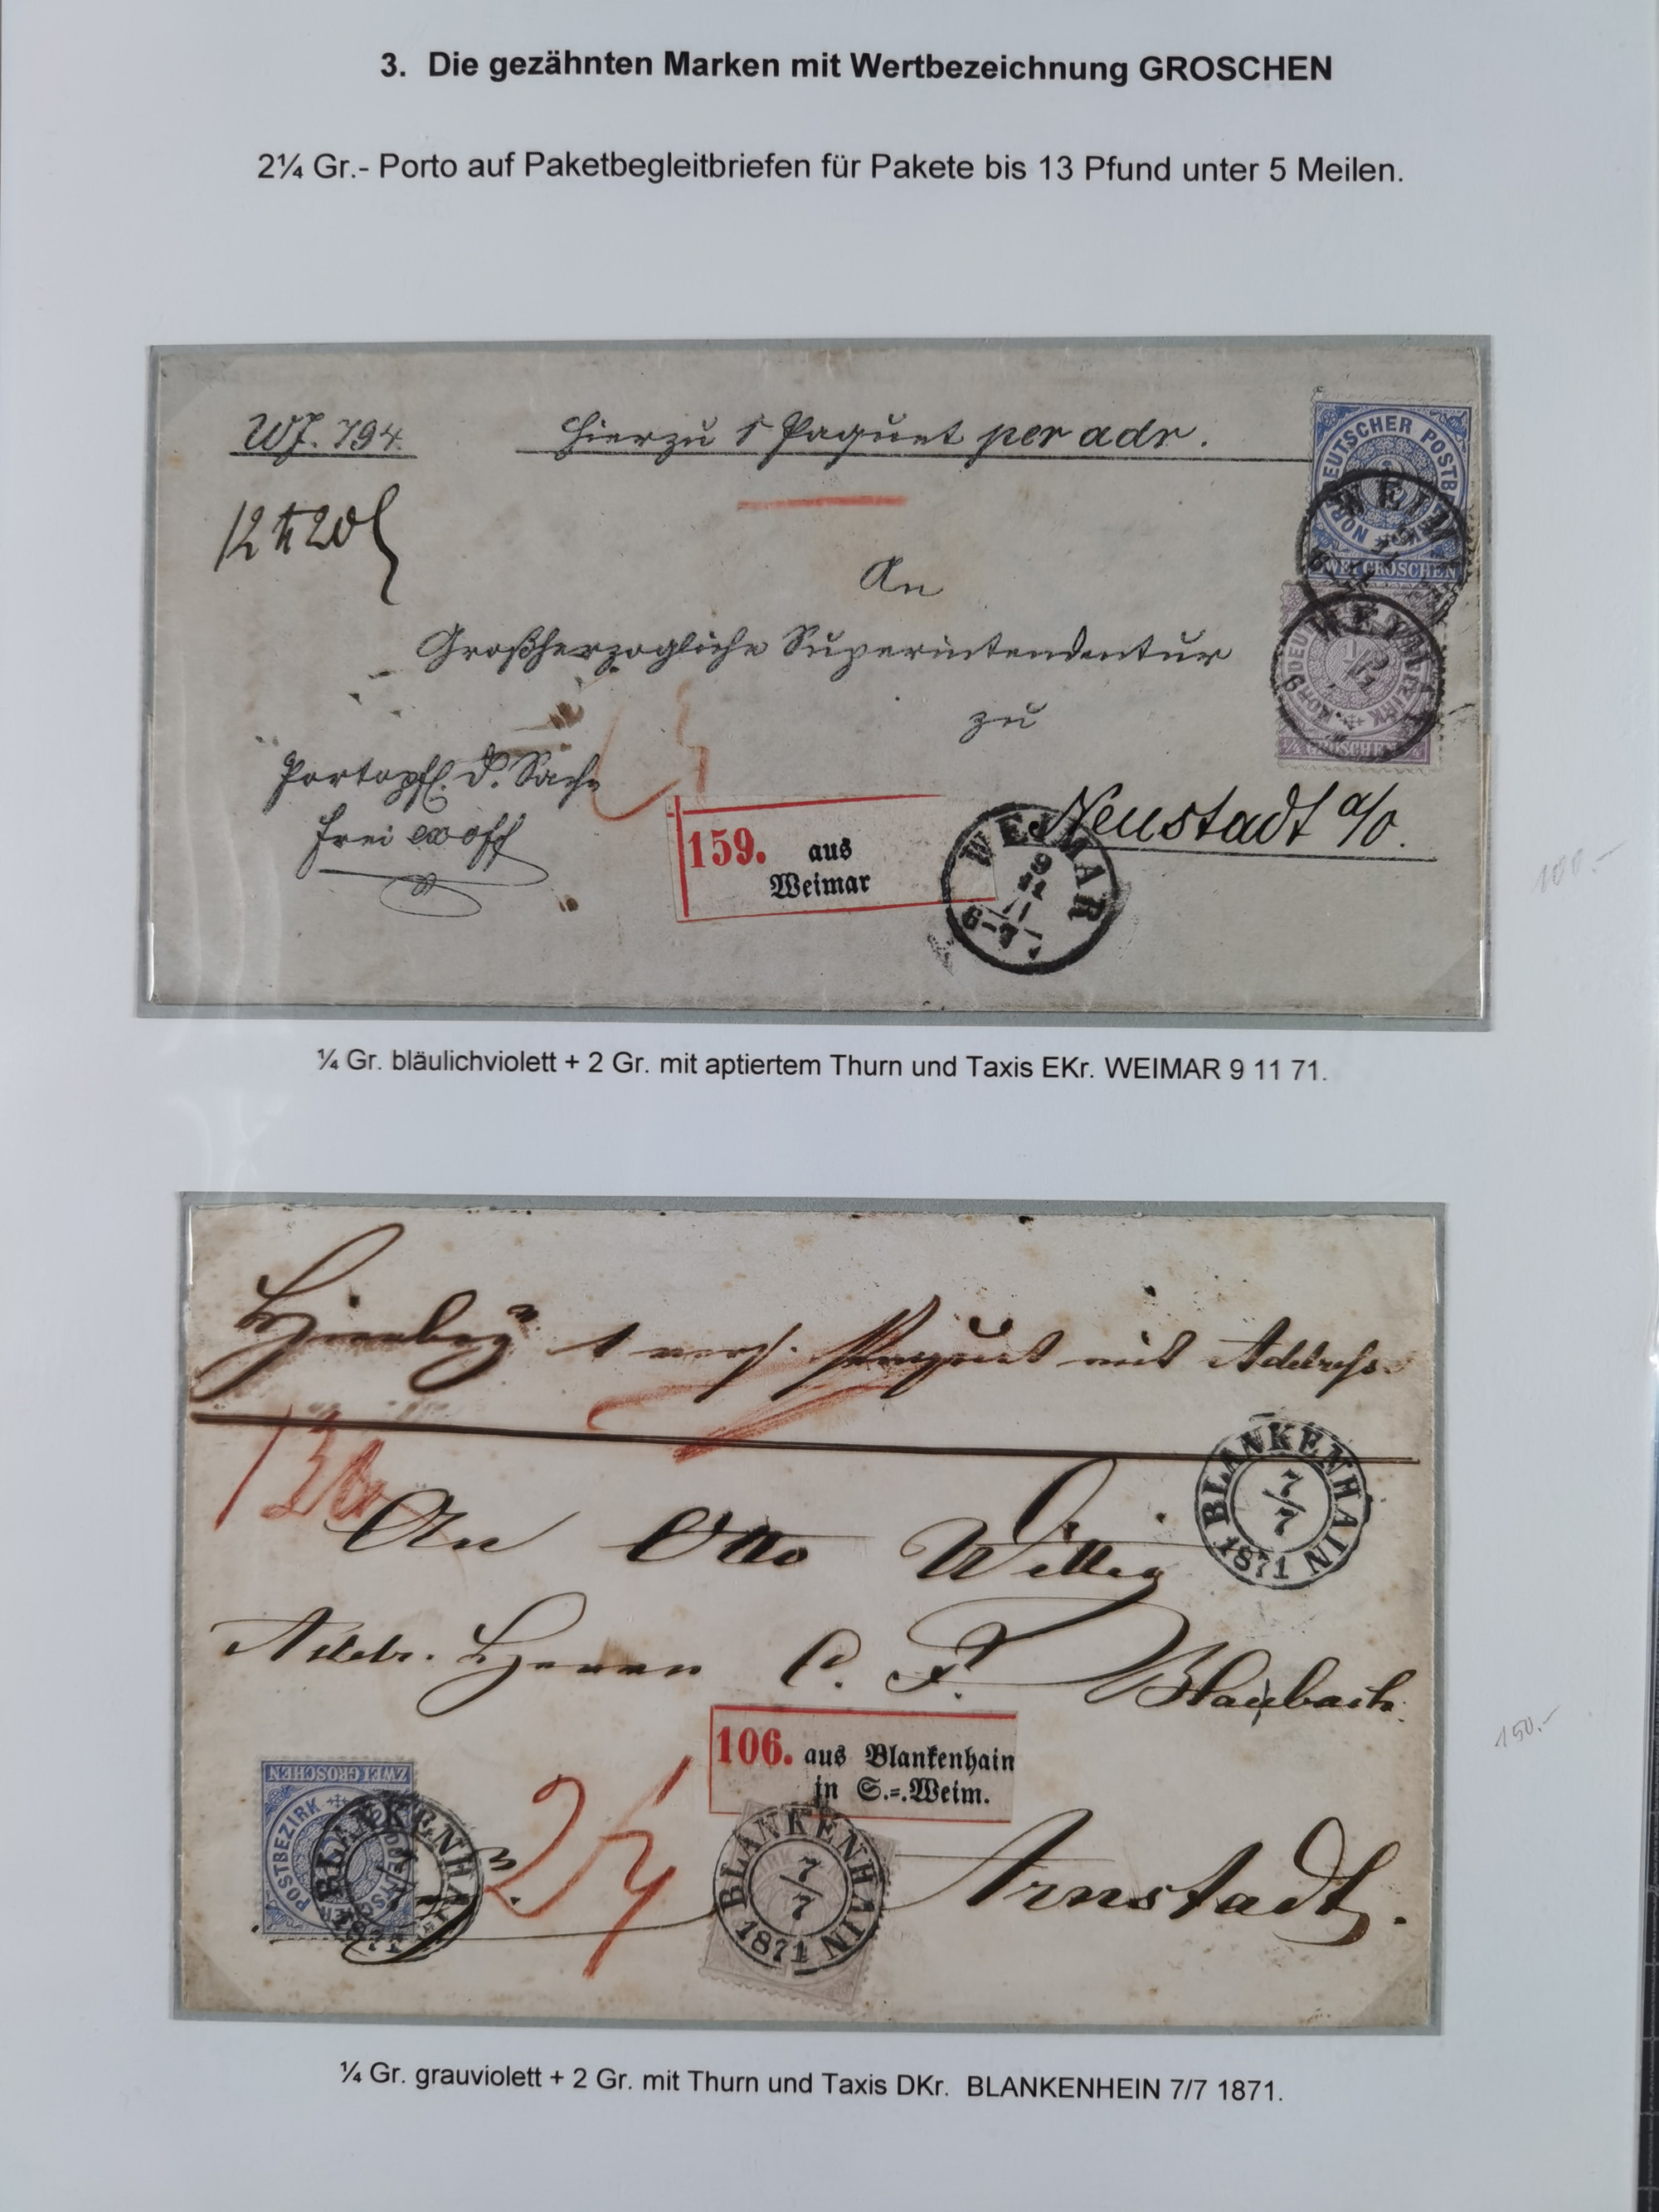 3. Die gezähnten Marken mit Wertbezeichnung GROSCHEN
2¼ Gr.- Porto auf Paketbegleitbriefen für Pakete bis 13 Pfund unter 5 Meilen.
WJ. 794.
hierzu 1 Paquet per adr.
An
Großherzogliche Superintendentur
zu
Neustadt a/O.
Portopfl. d. Sache
frei
159. aus
Weimar
WEIMAR
9
11
6-7
ZWEI GROSCHEN
¼ GROSCHEN ¼
100.-
¼ Gr. bläulichviolett + 2 Gr. mit aptiertem Thurn und Taxis EKr. WEIMAR 9 11 71.
Paquet mit Address
BLANKENHAIN
7/7
1871
An Otto Wittig
Addr. Herrn C. F. Blaubach.
106. aus Blankenhain
in S.=.Weim.
ZWEI GROSCHEN
POSTBEZIRK
BLANKENHAIN
7/7
1871
Arnstadt.
150.-
¼ Gr. grauviolett + 2 Gr. mit Thurn und Taxis DKr. BLANKENHEIN 7/7 1871.